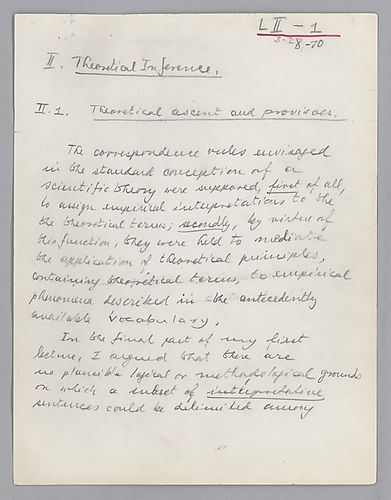 L II - 1
3-28-80
II. Theoretical Inference.
II.1. Theoretical ascent and provisoes.
The correspondence rules envisaged
in the standard conception of a
scientific theory were supposed, first of all,
to assign empirical interpretations to the
the theoretical terms; secondly, by virtue of
this function, they were held to mediate
the application of theoretical principles,
containing theoretical terms, to empirical
phenomena described in the antecedently
available vocabulary.
In the final part of my first
lecture, I argued that there are
no plausible logical or methodological grounds
on which a subset of interpretative
sentences could be delimited among